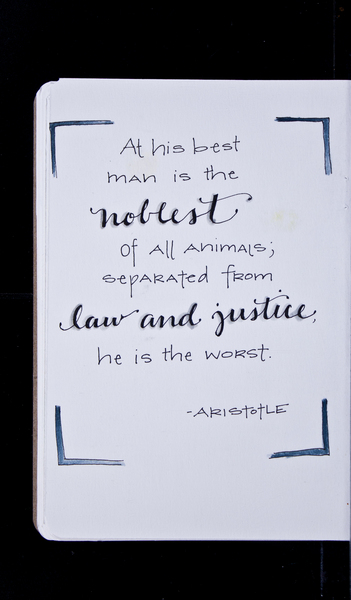 At his best
man is the
noblest
of all animals;
separated from
law and justice,
he is the worst.
-ARISTOTLE